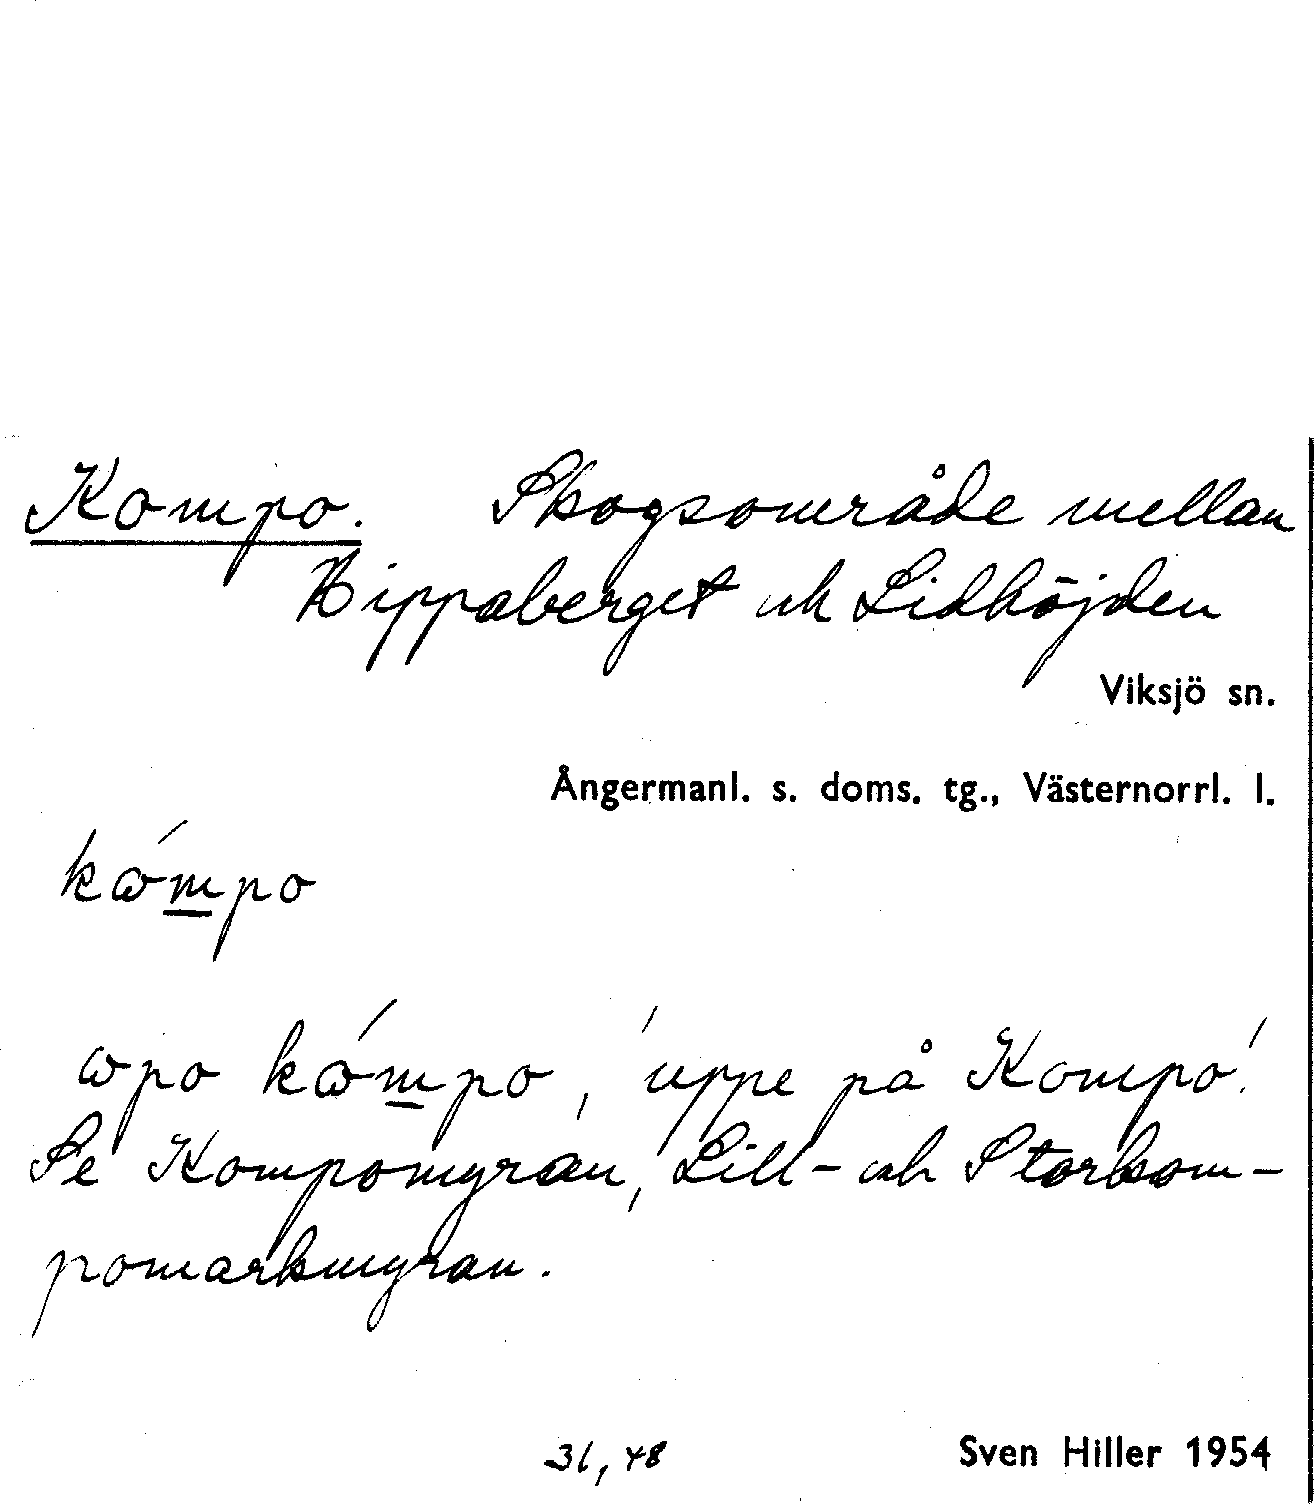 Kompo. Skogsområde mellan
Hippaberget och Lidhöjden
Viksjö sn.
Ångermanl. s. doms. tg., Västernorrl. l.
kώmpo
ωpo kώmpo, 'uppe på Kompo'.
Se Kompomyran, Lill- och Storkom-
pomarkmyran.
31, 48 Sven Hiller 1954